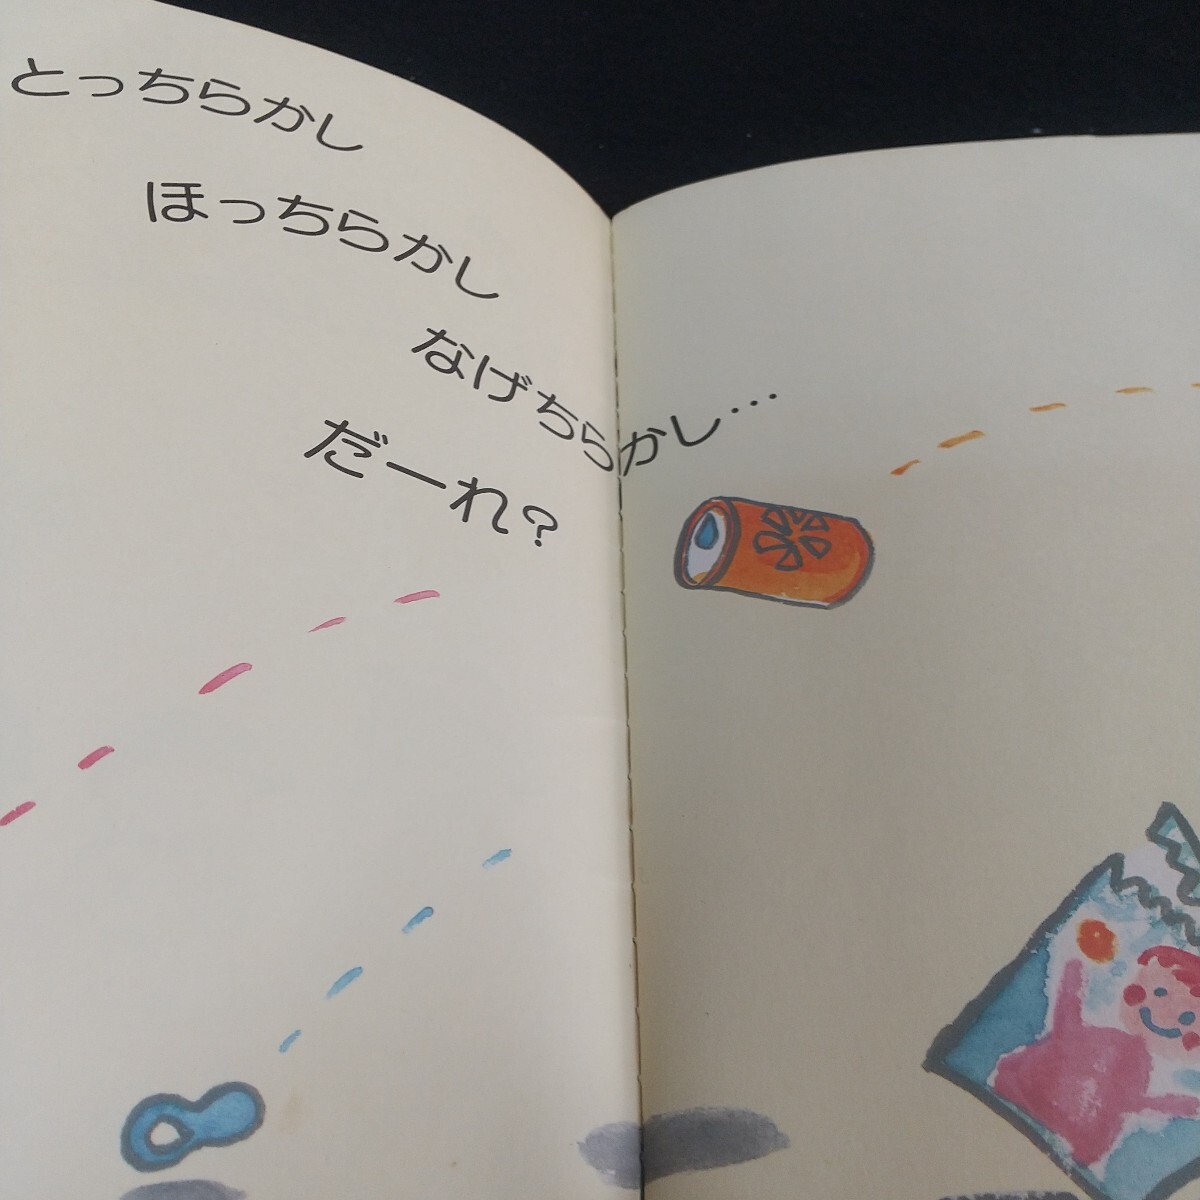 とっちらかし
ほっちらかし
なげちらかし…
だーれ？